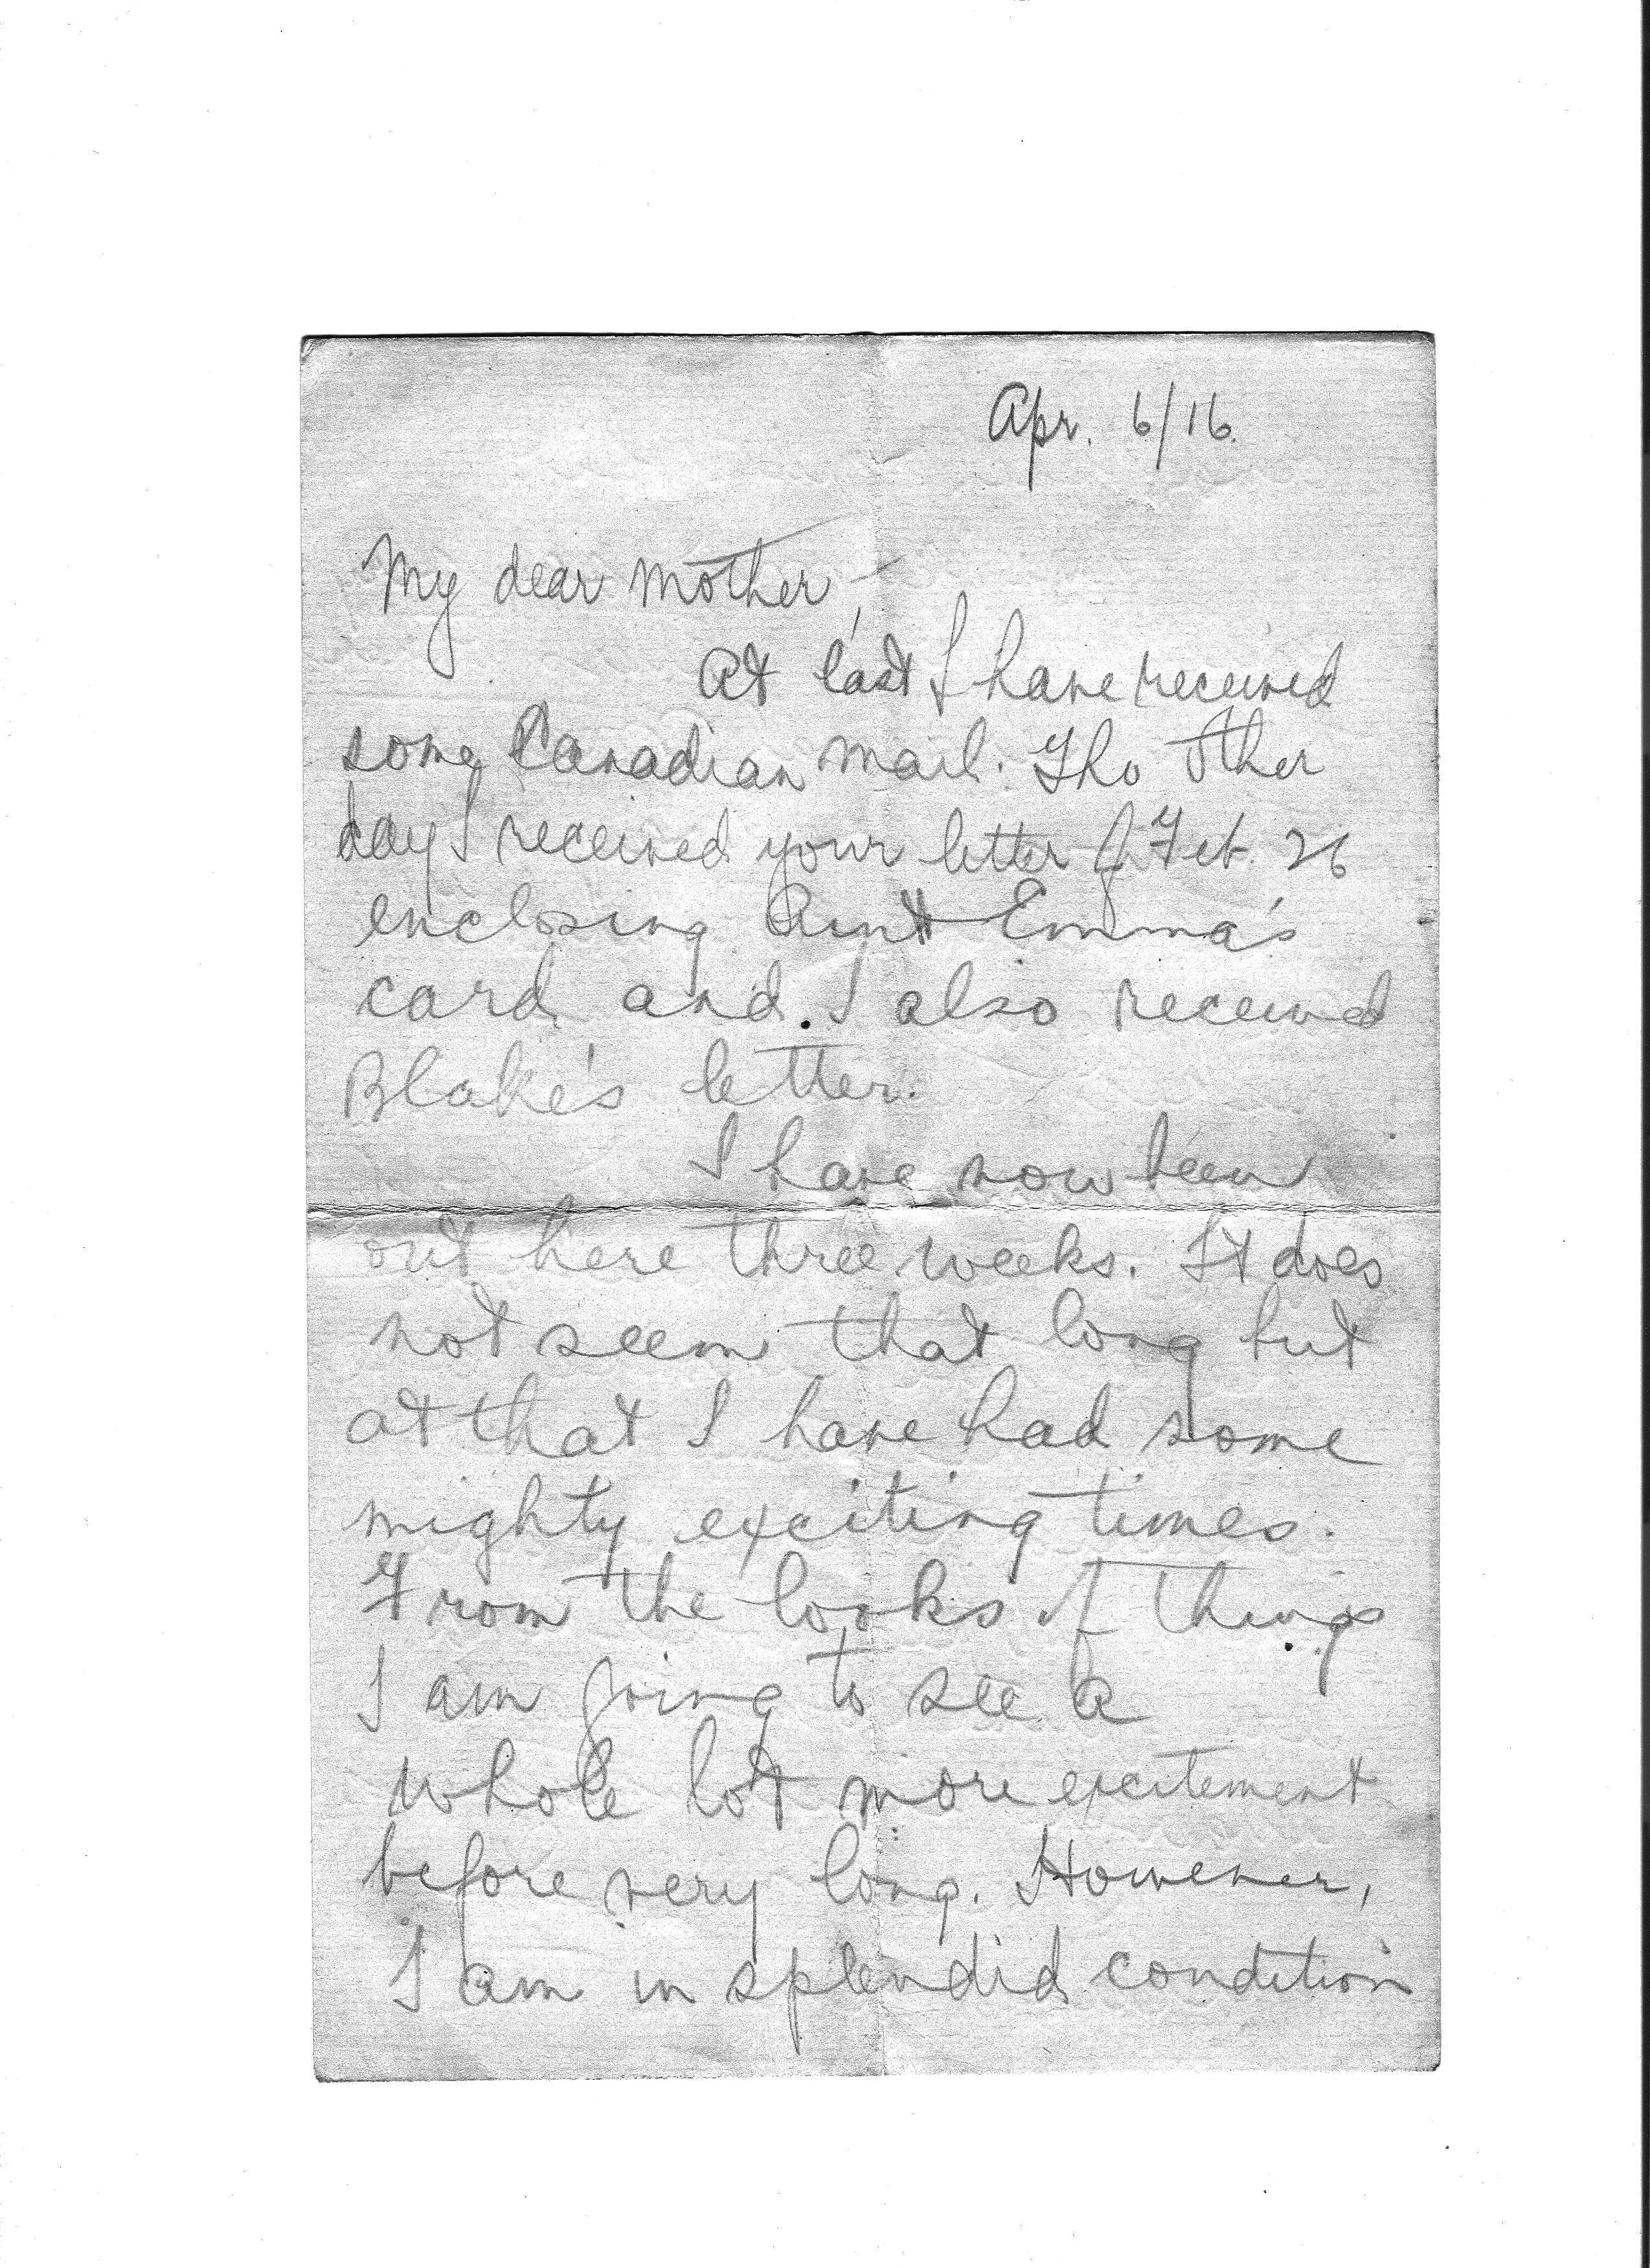 Apr. 6/16.
My dear Mother,
At last I have received
some Canadian mail. The other
day I received your letter of Feb. 26
enclosing Aunt Emma's
card and I also received
Blake's letter.
I have now been
out here three weeks. It does
not seem that long but
at that I have had some
mighty exciting times.
From the looks of things
I am going to see a
whole lot more excitement
before very long. However,
I am in splendid condition